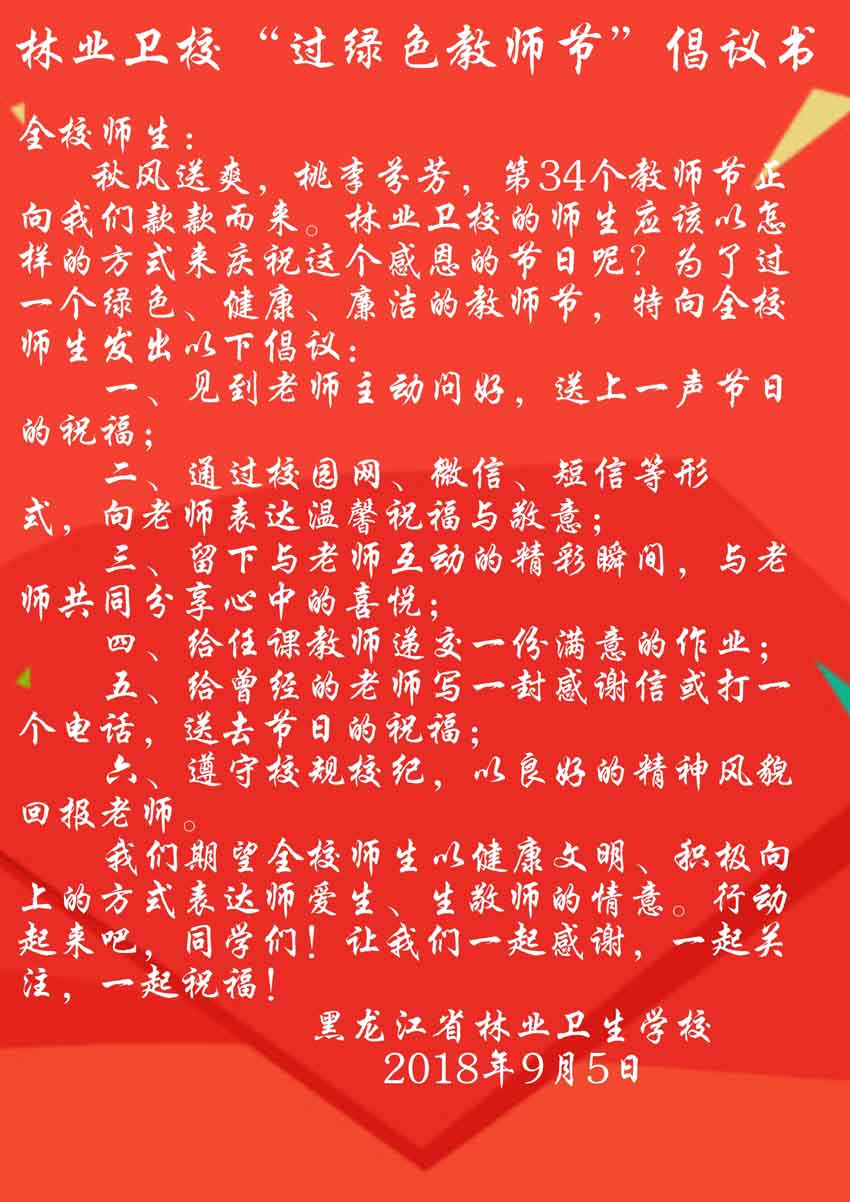 林业卫校“过绿色教师节”倡议书
全校师生：
秋风送爽，桃李芬芳，第34个教师节正
向我们款款而来。林业卫校的师生应该以怎
样的方式来庆祝这个感恩的节日呢？为了过
一个绿色、健康、廉洁的教师节，特向全校
师生发出以下倡议：
一、见到老师主动问好，送上一声节日
的祝福；
二、通过校园网、微信、短信等形
式，向老师表达温馨祝福与敬意；
三、留下与老师互动的精彩瞬间，与老
师共同分享心中的喜悦；
四、给任课教师递交一份满意的作业；
五、给曾经的老师写一封感谢信或打一
个电话，送去节日的祝福；
六、遵守校规校纪，以良好的精神风貌
回报老师。
我们期望全校师生以健康文明、积极向
上的方式表达师爱生、生敬师的情意。行动
起来吧，同学们！让我们一起感谢，一起关
注，一起祝福！
黑龙江省林业卫生学校
2018年9月5日